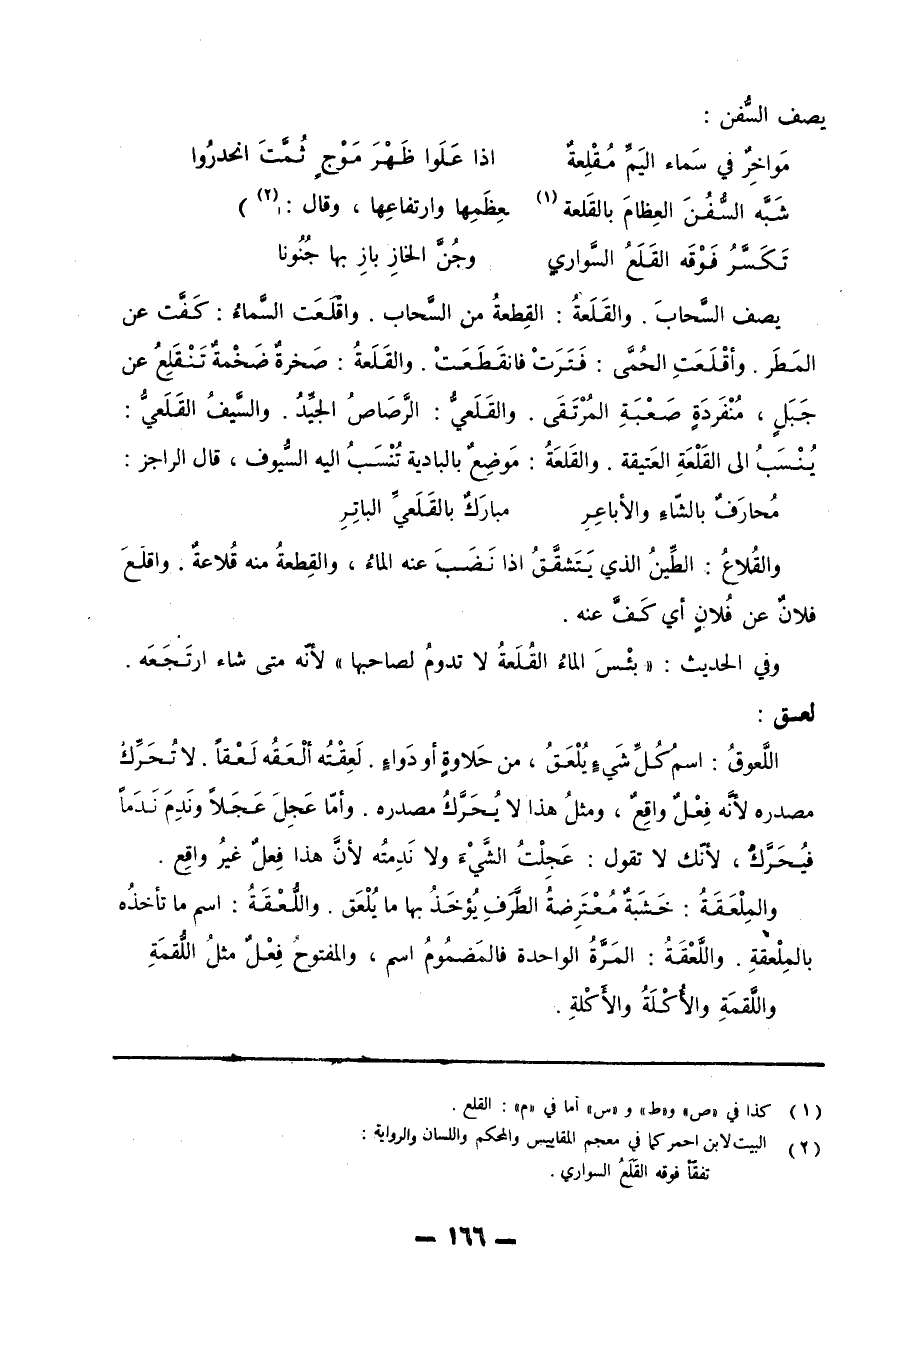 يصف السُّفن :
مَواخِرٌ في سَماء اليَمِّ مُقْلِعةٌ اذا عَلَوا ظَهْرَ مَوْجٍ ثُمَّتَ انحدرُوا
شَبَّه السُّفُنَ العِظامَ بالقَلعة (١) بعِظَمِها وارتفاعِها ، وقال : (٢) )
تَكَسَّرُ فَوْقه القَلَعُ السَّواري وجُنَّ الخازِ بازِ بها جُنُونا
يصف السَّحابَ . والقَلَعةُ : القِطعةُ من السَّحاب . واقْلَعَت السَّماءُ : كَفَّت عن
المَطَر . وأقْلَعَتِ الحُمَّى : فَتَرَتْ فانقَطَعَتْ . والقَلَعةُ : صَخرةٌ ضَخْمةٌ تَنْقَلِعُ عن
جَبَلٍ ، مُنْفَردَةٍ صَعْبَةِ المُرْتَقى . والقَلَعيُّ : الرَّصاصُ الجَيِّدُ . والسَّيفُ القَلَعيُّ :
يُنْسَبُ الى القَلْعَةِ العَتيقة . والقَلَعَةُ : مَوضِعٌ بالبادية تُنْسَبُ اليه السيوف ، قال الراجز :
مُحارَفٌ بالشّاءِ والأباعِرِ مبارَكٌ بالقَلَعيِّ الباتِرِ
والقُلاعُ : الطِّينُ الذي يَتَشقَّقُ اذا نَضَبَ عنه الماءُ ، والقِطعةُ منه قُلاعةٌ . واقلَعَ
فلانٌ عن فُلانٍ أي كَفَّ عنه .
وفي الحديث : « بئْسَ الماءُ القُلَعةُ لا تدومُ لصاحبها » لأنّه متى شاء ارتَجَعَه .
لعق :
اللَّعوقُ : اسمُ كُلِّ شَيءٍ يُلْعَقُ ، من حَلاوةٍ أو دَواءٍ . لَعِقْتُه ألْعَقُه لَعْقاً . لا تُحَرِّكْ
مصدره لأنَّه فِعْلٌ واقِعٌ ، ومثلُ هذا لا يُحَرَّكُ مصدره . وأمّا عَجِلَ عَجَلاً ونَدِمَ نَدَماً
فيُحَرَّكُ ، لأنّك لا تقول : عَجِلْتُ الشَّيْءَ ولا نَدِمتُه لأنَّ هذا فِعلٌ غيرُ واقِع .
والمِلْعَقَةُ : خَشَبَةٌ مُعْتَرِضةُ الطَّرَفِ يُؤخَذُ بها ما يُلْعَق . واللُّعْقَةُ : اسم ما تأخذُه
بالمِلْعقةِ . واللَّعْقَةُ : المَرَّةُ الواحدة فالمَضمُومُ اسم ، والمفتوحُ فِعْلٌ مثلُ اللُّقمَةِ
واللَّقمَةِ والأُكْلَةُ والأَكْلةِ .
(١) كذا في «ص» و«ط» و «س» أما في «م» : القلع .
(٢) البيت لابن احمر كما في معجم المقاييس والمحكم واللسان والرواية :
تفقّأ فوقه القَلَعُ السواري .
— ١٦٦ —